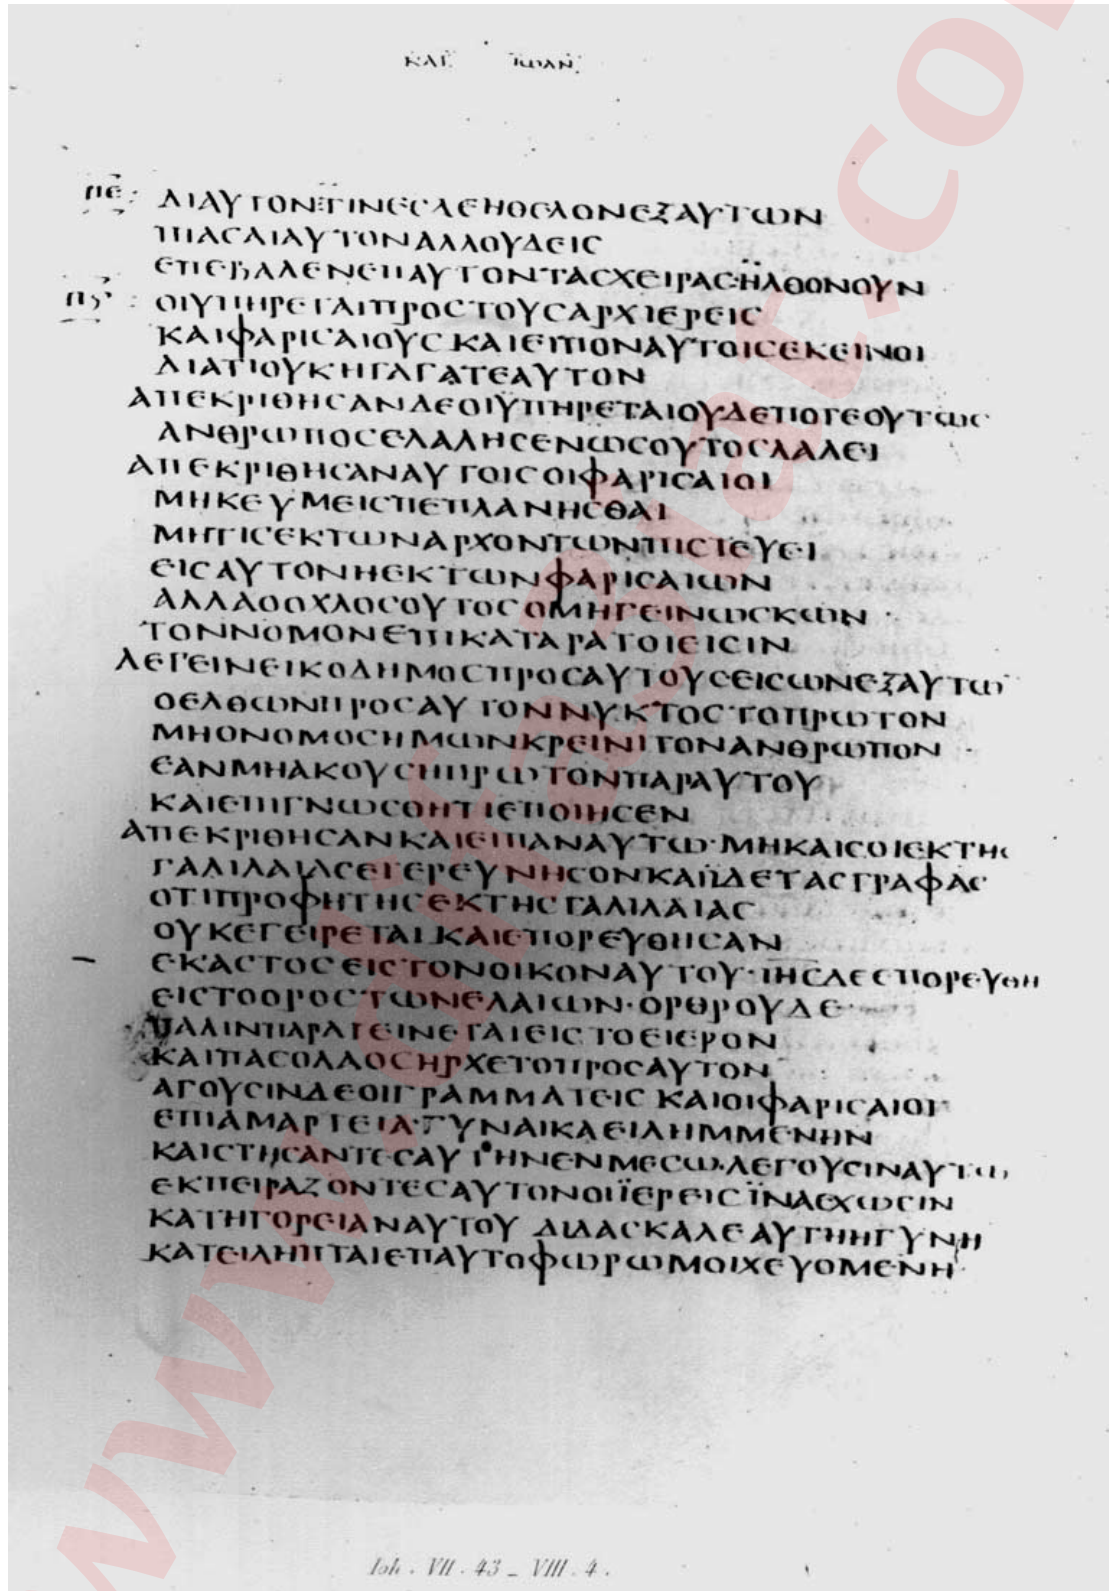 ΚΑΤ ΙΩΑΝ
ΠΕ: ΔΙΑΥΤΟΝΤΙΝΕϹΔΕΗΘΕΛΟΝΕΞΑΥΤΩΝ
ΠΙΑϹΑΙΑΥΤΟΝΑΛΛΟΥΔΕΙϹ
ΕΠΕΒΑΛΕΝΕΠΑΥΤΟΝΤΑϹΧΕΙΡΑϹ·ΗΛΘΟΝΟΥΝ
ΟΙΥΠΗΡΕΤΑΙΠΡΟϹΤΟΥϹΑΡΧΙΕΡΕΙϹ
ΚΑΙΦΑΡΙϹΑΙΟΥϹ ΚΑΙΕΙΠΟΝΑΥΤΟΙϹΕΚΕΙΝΟΙ
ΔΙΑΤΙΟΥΚΗΓΑΓΑΤΕΑΥΤΟΝ
ΑΠΕΚΡΙΘΗϹΑΝΔΕΟΙΫΠΗΡΕΤΑΙΟΥΔΕΠΟΤΕΟΥΤΩϹ
ΑΝΘΡΩΠΟϹΕΛΑΛΗϹΕΝΩϹΟΥΤΟϹΛΑΛΕΙ
ΑΠΕΚΡΙΘΗϹΑΝΑΥΤΟΙϹΟΙΦΑΡΙϹΑΙΟΙ
ΜΗΚΕΥΜΕΙϹΠΕΠΛΑΝΗϹΘΑΙ
ΜΗΤΙϹΕΚΤΩΝΑΡΧΟΝΤΩΝΠΙϹΤΕΥΕΙ
ΕΙϹΑΥΤΟΝΗΕΚΤΩΝΦΑΡΙϹΑΙΩΝ
ΑΛΛΑΟΟΧΛΟϹΟΥΤΟϹΟΜΗΓΕΙΝΩϹΚΩΝ
ΤΟΝΝΟΜΟΝΕΠΙΚΑΤΑΡΑΤΟΙΕΙϹΙΝ
ΛΕΓΕΙΝΕΙΚΟΔΗΜΟϹΠΡΟϹΑΥΤΟΥϹΕΙϹΩΝΕΞΑΥΤΩ
ΟΕΛΘΩΝΠΡΟϹΑΥΤΟΝΝΥΚΤΟϹΤΟΠΡΩΤΟΝ
ΜΗΟΝΟΜΟϹΗΜΩΝΚΡΕΙΝΙΤΟΝΑΝΘΡΩΠΟΝ
ΕΑΝΜΗΑΚΟΥϹΗΠΡΩΤΟΝΠΑΡΑΥΤΟΥ
ΚΑΙΕΠΙΓΝΩϹΘΗΤΙΕΠΟΙΗϹΕΝ
ΑΠΕΚΡΙΘΗϹΑΝΚΑΙΕΙΠΑΝΑΥΤΩ·ΜΗΚΑΙϹΟΙΕΚΤΗϹ
ΓΑΛΙΛΑΙΑϹΕΙΓΕΡΕΥΝΗϹΟΝΚΑΪΔΕΤΑϹΓΡΑΦΑϹ
ΟΤΙΠΡΟΦΗΤΗϹΕΚΤΗϹΓΑΛΙΛΑΙΑϹ
ΟΥΚΕΓΕΙΡΕΤΑΙ ΚΑΙΕΠΟΡΕΥΘΗϹΑΝ
ΕΚΑϹΤΟϹΕΙϹΤΟΝΟΙΚΟΝΑΥΤΟΥ·ΙΗϹΔΕΕΠΟΡΕΥΘΗ
ΕΙϹΤΟΟΡΟϹΤΩΝΕΛΑΙΩΝ·ΟΡΘΡΟΥΔΕ
ΠΑΛΙΝΠΑΡΑΓΕΙΝΕΤΑΙΕΙϹΤΟΕΙΕΡΟΝ
ΚΑΙΠΑϹΟΛΑΟϹΗΡΧΕΤΟΠΡΟϹΑΥΤΟΝ
ΑΓΟΥϹΙΝΔΕΟΙΓΡΑΜΜΑΤΕΙϹ ΚΑΙΟΙΦΑΡΙϹΑΙΟΙ
ΕΠΙΑΜΑΡΤΕΙΑ·ΓΥΝΑΙΚΑΕΙΛΗΜΜΕΝΗΝ
ΚΑΙϹΤΗϹΑΝΤΕϹΑΥΤΗΝΕΝΜΕϹΩ·ΛΕΓΟΥϹΙΝΑΥΤΩ
ΕΚΠΕΙΡΑΖΟΝΤΕϹΑΥΤΟΝΟΙΪΕΡΕΙϹΪΝΑΕΧΩϹΙΝ
ΚΑΤΗΓΟΡΕΙΑΝΑΥΤΟΥ ΔΙΔΑϹΚΑΛΕΑΥΤΗΗΓΥΝΗ
ΚΑΤΕΙΛΗΠΤΑΙΕΠΑΥΤΟΦΩΡΩΜΟΙΧΕΥΟΜΕΝΗ
Ioh. VII. 43 – VIII. 4.